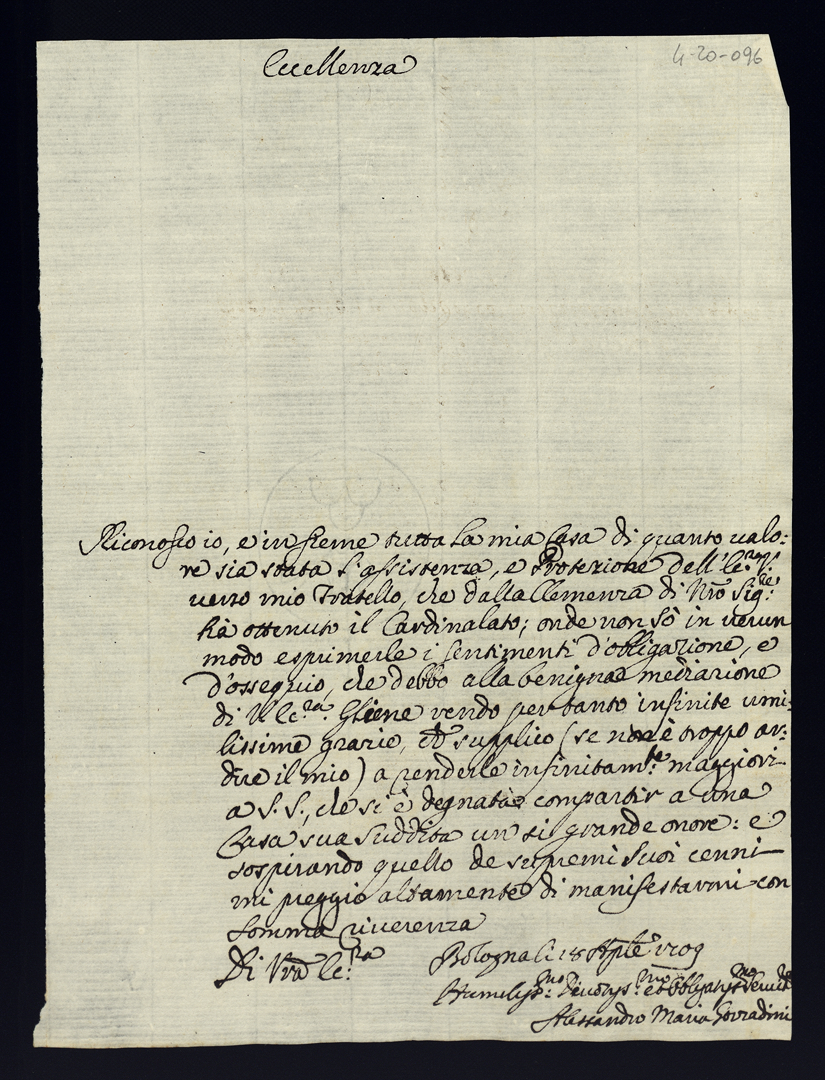 4-20-096
Eccellenza
Riconosco io, e insieme tutta la mia Casa di quanto valo:
re sia stata l'assistenza, e Protezione dell'Ec.za V.
verso mio Fratello, che dalla Clemenza di Nro Sig.re
hà ottenuto il Cardinalato; onde non sò in verun
modo esprimerle i sentimenti d'obbligazione, e
d'ossequio, che debbo alla benigna mediazione
di V. Ec.za. Gliene rendo per tanto infinite umi:
lissime grazie, et supplico (se non è troppo ar:
dire il mio) a renderle infinitam.te maggiori
a S. S., che si è degnata compartir a una
Casa sua suddita un sì grande onore: e
sospirando quello de supremi suoi cenni
mi preggio altamente di manifestarmi con
somma riverenza
Di Vra Ec.za
Bologna li 18 1709
Humiliss.mo Divotiss.mo et Obbligatiss.mo
Alessandro Maria